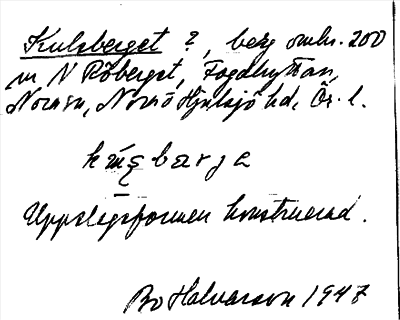 Kulsberget ?, berg omkr. 200
m N Röberget, Fogdhyttan,
Nora sn, Nora o Hjulsjö hd, Ör. l.
Uppslagsformen konstruerad.
Bo Halvarson 1947